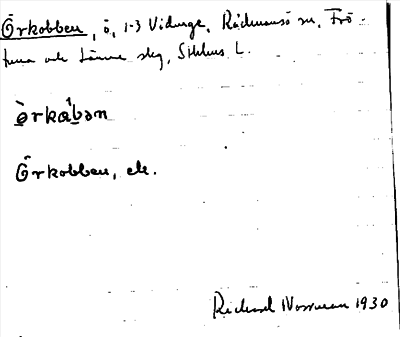 Örkobben, ö, 1-3 Vidinge, Rådmansö sn, Frö-
tuna och Länna skg, Sthlms L.
ö̀rkåbən
Örkobben, ek.
Richard Norrman 1930